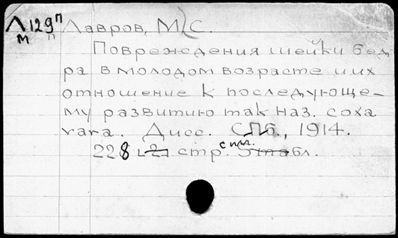 Л129п Лавров, М.С.
м п
Повреждения шейки бед-
ра в молодом возрасте и их
отношение к последующе-
му развитию так наз. coxa
vara. Дисс. СПб., 1914.
228 стр. с илл.